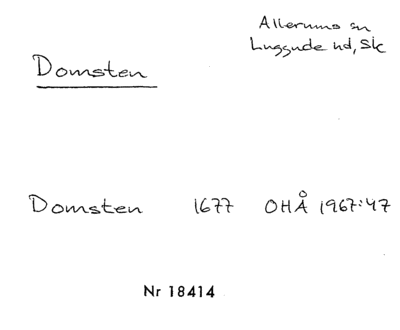 Allerums sn
Luggude hd, Sk
Domsten
Domsten 1677 OHÅ 1967:47
Nr 18414